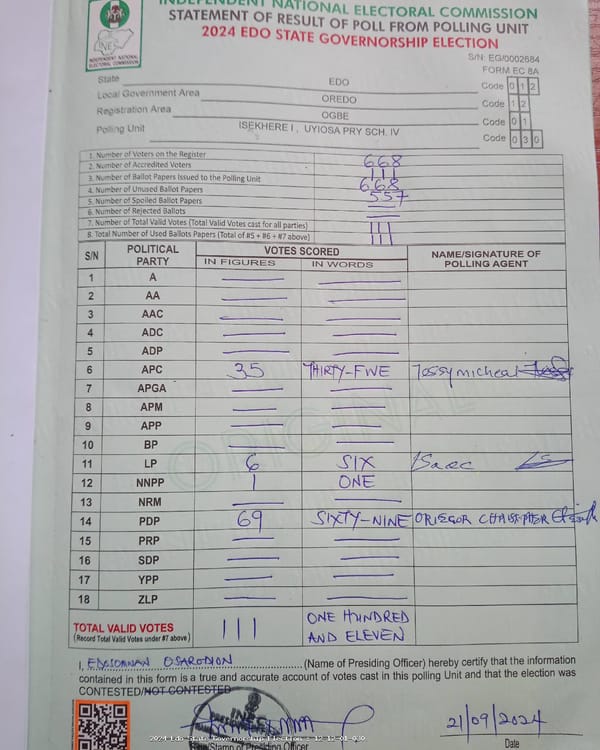 INDEPENDENT NATIONAL ELECTORAL COMMISSION
STATEMENT OF RESULT OF POLL FROM POLLING UNIT
2024 EDO STATE GOVERNORSHIP ELECTION
INEC
INDEPENDENT NATIONAL ELECTORAL COMMISSION
S/N: EG/0002684
FORM EC 8A
State EDO Code 0 1 2
Local Government Area OREDO Code 1 2
Registration Area OGBE Code 0 1
Polling Unit ISEKHERE I, UYIOSA PRY SCH. IV Code 0 3 0
1. Number of Voters on the Register 668
2. Number of Accredited Voters 111
3. Number of Ballot Papers Issued to the Polling Unit 668
4. Number of Unused Ballot Papers 557
5. Number of Spoiled Ballot Papers
6. Number of Rejected Ballots
7. Number of Total Valid Votes (Total Valid Votes cast for all parties) 111
8. Total Number of Used Ballots Papers (Total of #5 + #6 + #7 above) 111
S/N POLITICAL PARTY VOTES SCORED NAME/SIGNATURE OF POLLING AGENT
IN FIGURES IN WORDS
1 A
2 AA
3 AAC
4 ADC
5 ADP
6 APC 35 THIRTY-FIVE
7 APGA
8 APM
9 APP
10 BP
11 LP 6 SIX Isaac
12 NNPP 1 ONE
13 NRM
14 PDP 69 SIXTY-NINE
15 PRP
16 SDP
17 YPP
18 ZLP
TOTAL VALID VOTES 111 ONE HUNDRED AND ELEVEN
(Record Total Valid Votes under #7 above)
ORIGINAL
I, OSARODION (Name of Presiding Officer) hereby certify that the information
contained in this form is a true and accurate account of votes cast in this polling Unit and that the election was
CONTESTED/NOT CONTESTED
21/09/2024
2024 Edo State Governorship Election - 12-12-01-030
Sign/Stamp of Presiding Officer Date